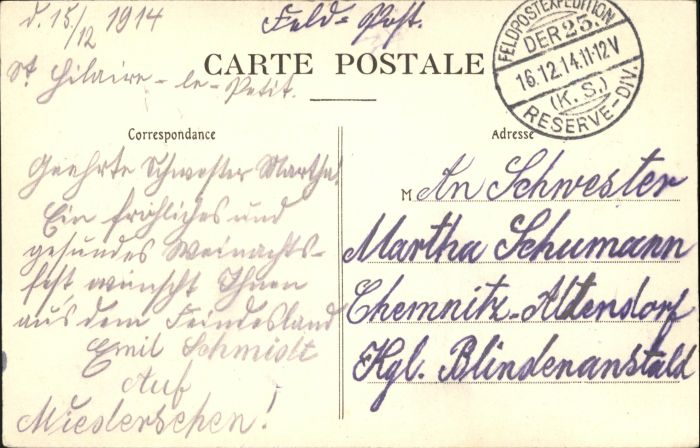 d. 15/12 1914
Feld-Post.
St. Hilaire-le-Petit.
CARTE POSTALE
FELDPOSTEXPEDITION
DER 23.
16.12.14.11-12V
(K. S.)
RESERVE-DIV.
Correspondance
Geehrte Schwester Martha!
Ein fröhliches und
gesundes Weinachts-
fest, wünscht Ihnen
aus dem Feindesland
Emil Schmidt
Auf
Wiedersehen!
Adresse
M An Schwester
Martha Schumann
Chemnitz-Altendorf
Kgl. Blindenanstald